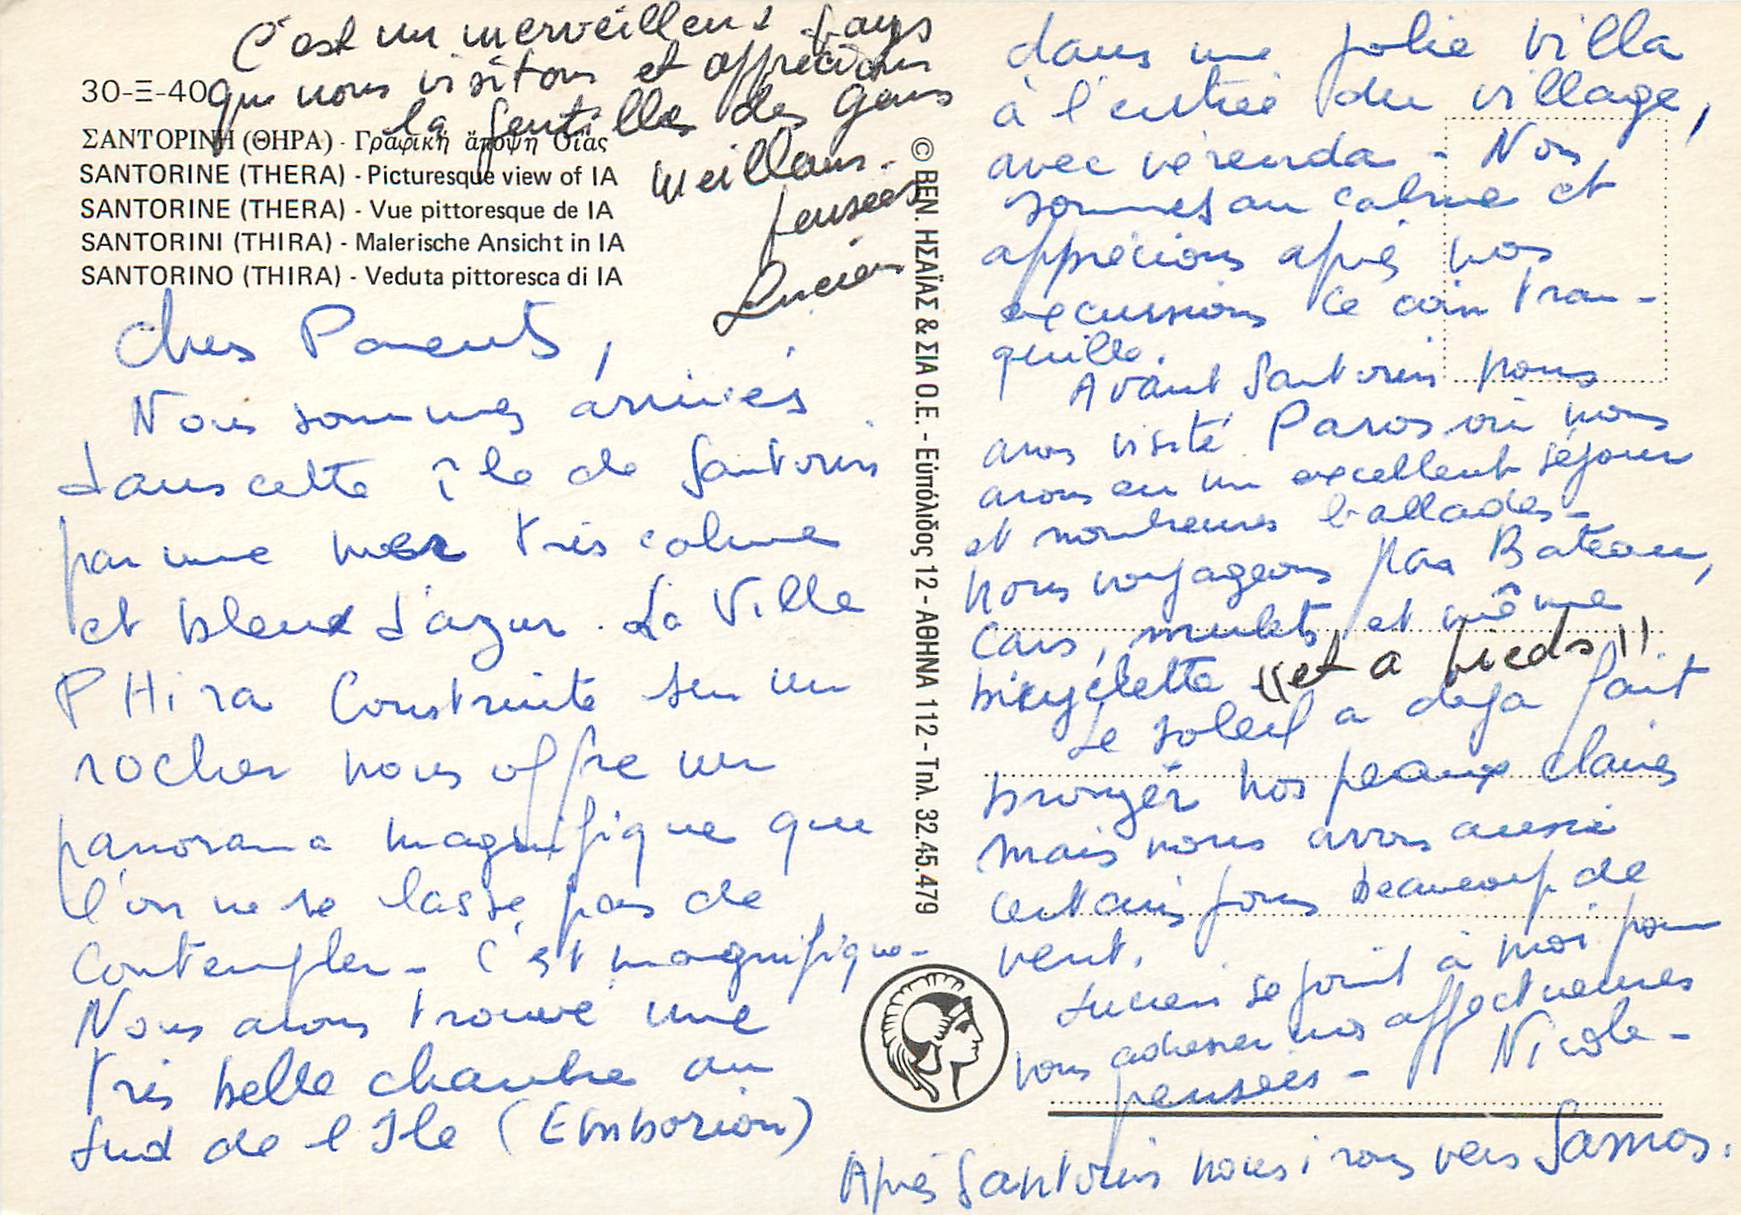 C'est un merveilleux pays
que nous visitons et apprécions
la gentilles des gens
Meilleurs.
pensées
Lucien
30-Ξ-40
ΣΑΝΤΟΡΙΝΗ (ΘΗΡΑ) - Γραφική ἄποψη Οἴας
SANTORINE (THERA) - Picturesque view of IA
SANTORINE (THERA) - Vue pittoresque de IA
SANTORINI (THIRA) - Malerische Ansicht in IA
SANTORINO (THIRA) - Veduta pittoresca di IA
Chers Parents,
Nous sommes arrivés
dans cette île de Santorin
par une mer très calme
et bleue d'azur. La Ville
PHira Construite sur un
rocher nous offre un
panorama magnifique que
l'on ne se lasse pas de
Contempler - C'est magnifique -
Nous avons trouvé une
très belle chambre au
Sud de l'Ile (Emborion)
© ΒΕΝ. ΗΣΑΪΑΣ & ΣΙΑ Ο.Ε. - Εὐπόλιδος 12 - ΑΘΗΝΑ 112 - Τηλ. 32.45.479
dans une jolie villa
à l'entrée du village,
avec verenda - Nous
sommes au calme et
apprécions après nos
excursions ce coin tran-
quille.
Avant Santorin nous
avons visité Paros où nous
avons eu un excellent séjour
et nombreuses ballades -
Nous voyageons par Bateau,
Cars, mulets et même
bicyclette "et a pieds"
Le soleil a deja fait
bronzer nos peaux claires
mais nous avons aussi
certains jours beaucoup de
vent.
Lucien se joint à moi pour
vous adresser nos affectueuses
pensées - Nicole -
Après Santorin nous irons vers Samos.